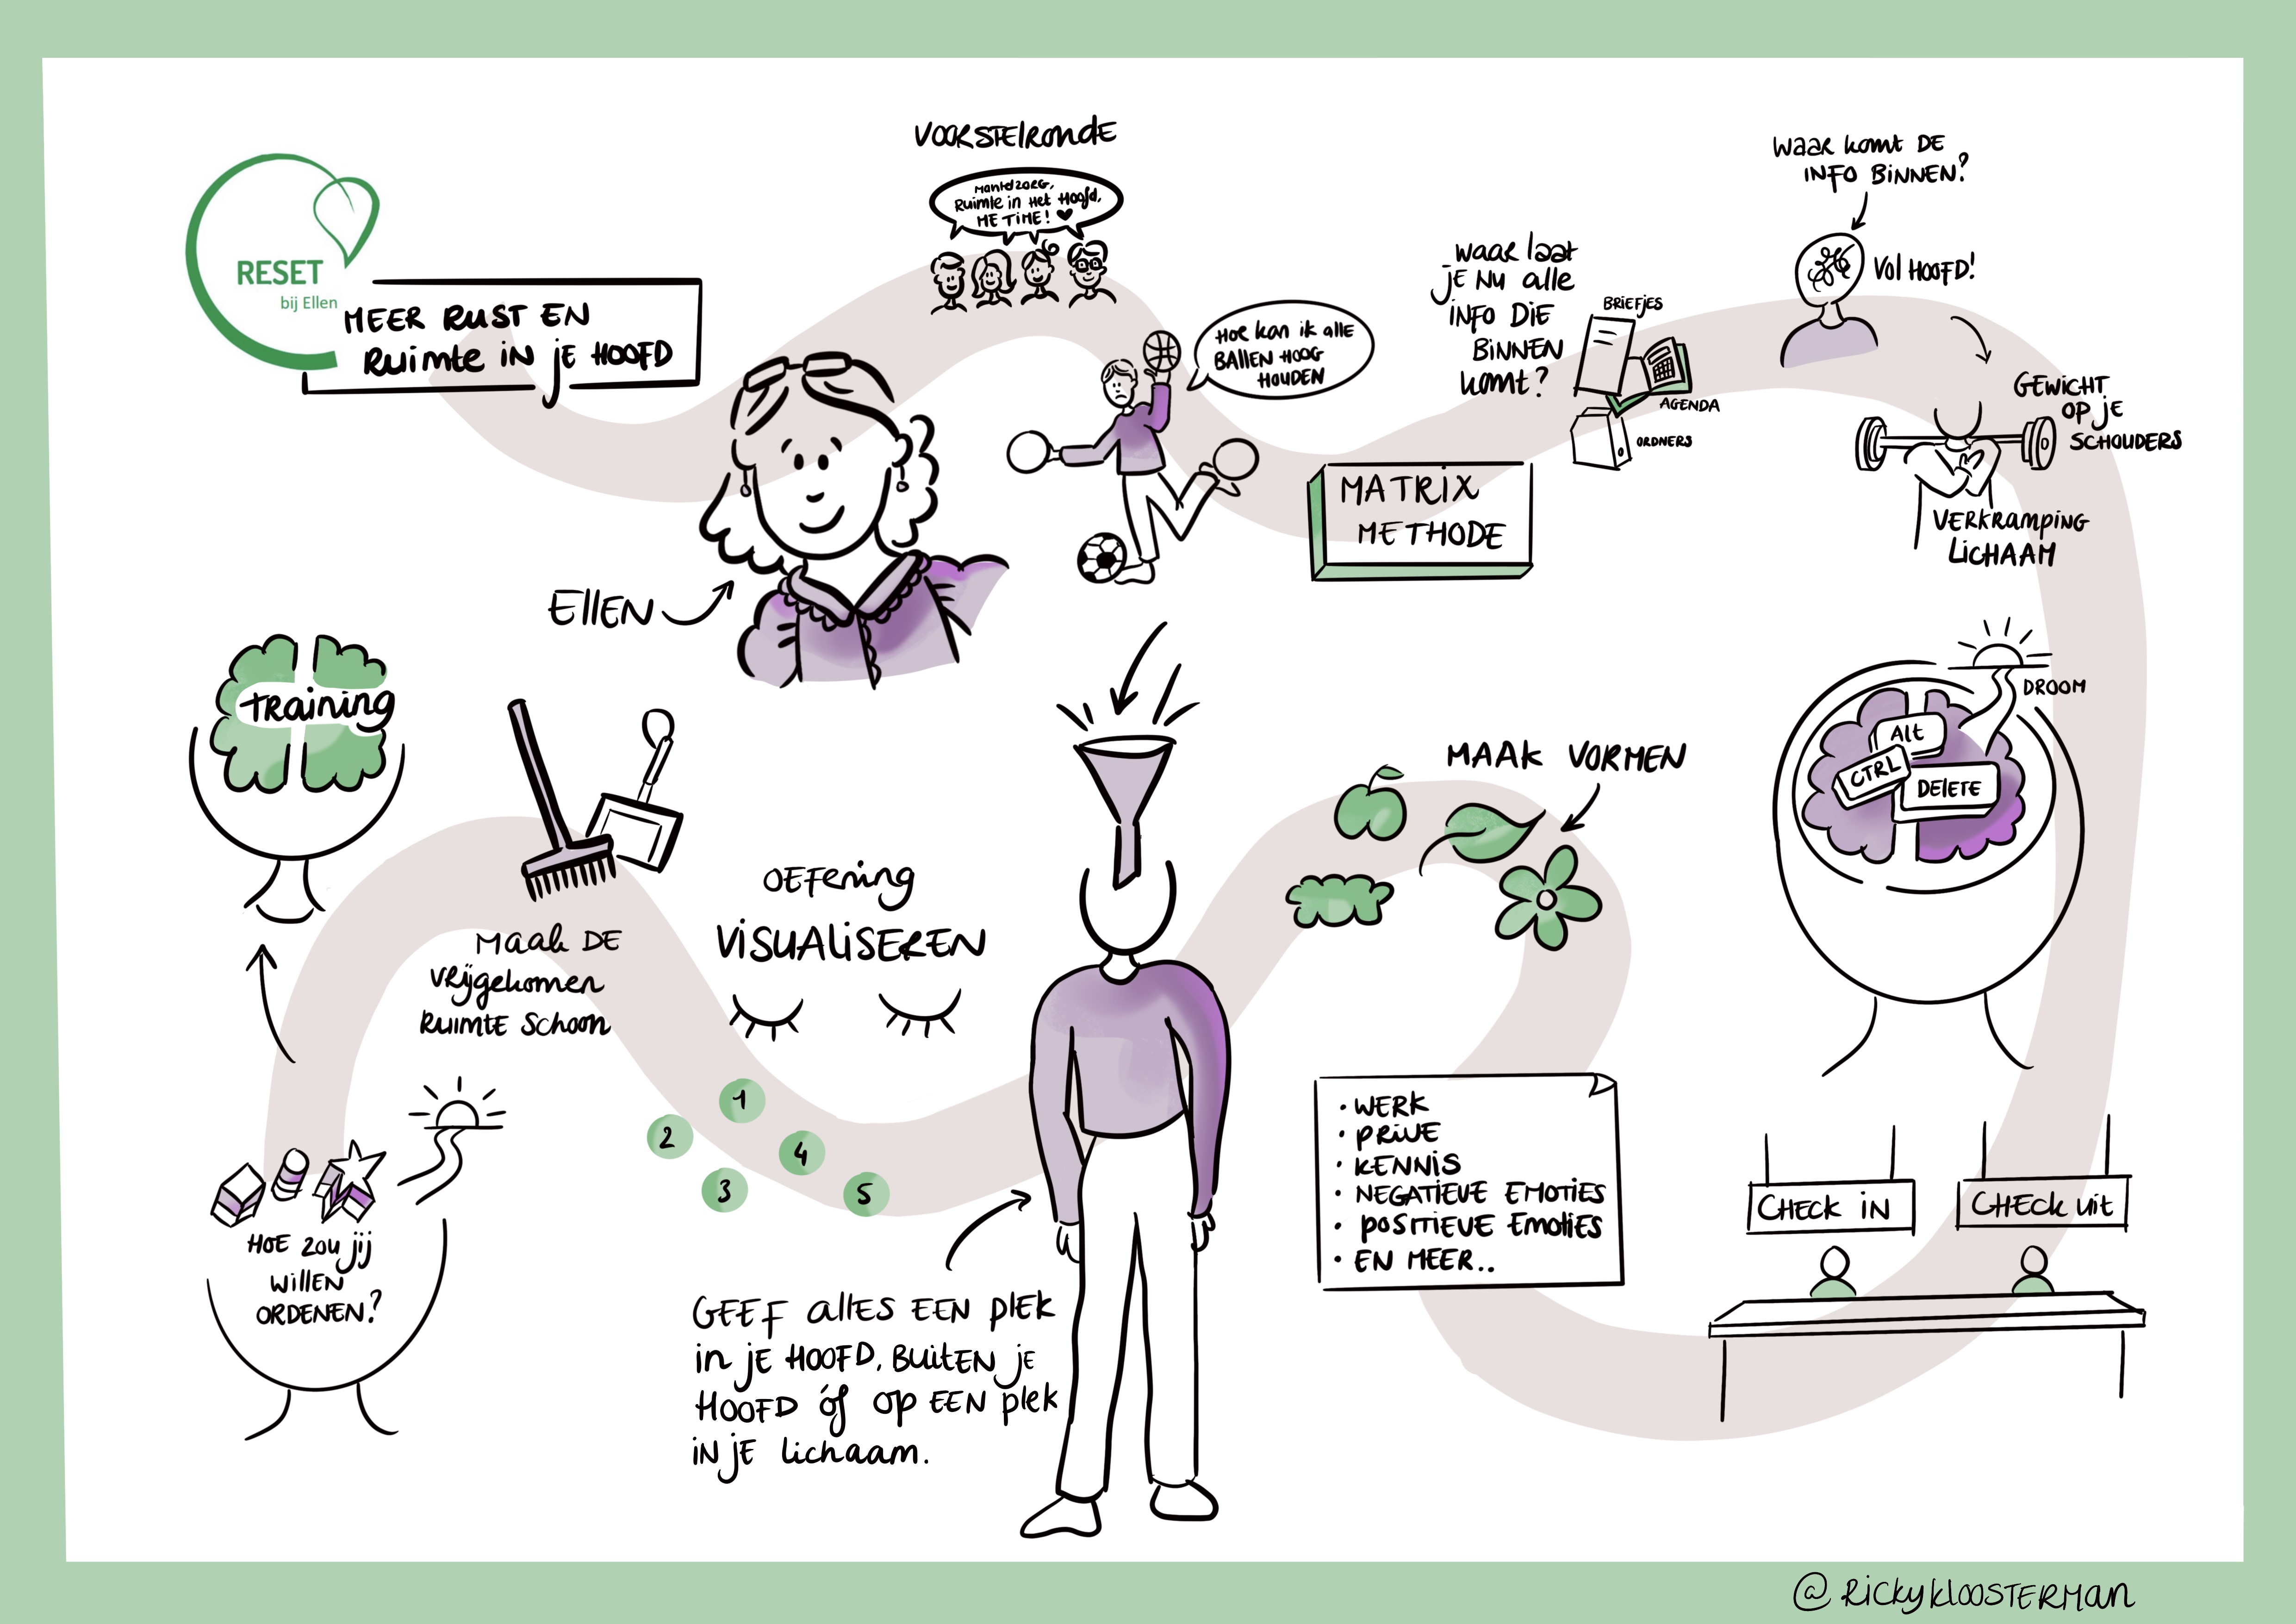 RESET
bij Ellen
MEER RUST EN
RUIMTE IN JE HOOFD
ELLEN
VOORSTELRONDE
MANTELZORG,
RUIMTE IN HET HOOFD,
ME TIME!
HOE KAN IK ALLE
BALLEN HOOG
HOUDEN
MATRIX
METHODE
WAAR LAAT
JE NU ALLE
INFO DIE
BINNEN
KOMT?
BRIEFJES
AGENDA
ORDNERS
WAAR KOMT DE
INFO BINNEN?
VOL HOOFD!
GEWICHT
OP JE
SCHOUDERS
VERKRAMPING
LICHAAM
DROOM
ALT
CTRL
DELETE
CHECK IN
CHECK UIT
MAAK VORMEN
• WERK
• PRIVE
• KENNIS
• NEGATIEVE EMOTIES
• POSITIEVE EMOTIES
• EN MEER..
GEEF ALLES EEN PLEK
IN JE HOOFD, BUITEN JE
HOOFD ÓF OP EEN PLEK
IN JE LICHAAM.
OEFENING
VISUALISEREN
1
2
3
4
5
MAAK DE
VRIJGEKOMEN
RUIMTE SCHOON
HOE ZOU JIJ
WILLEN
ORDENEN?
TRAINING
@RICKYKLOOSTERMAN